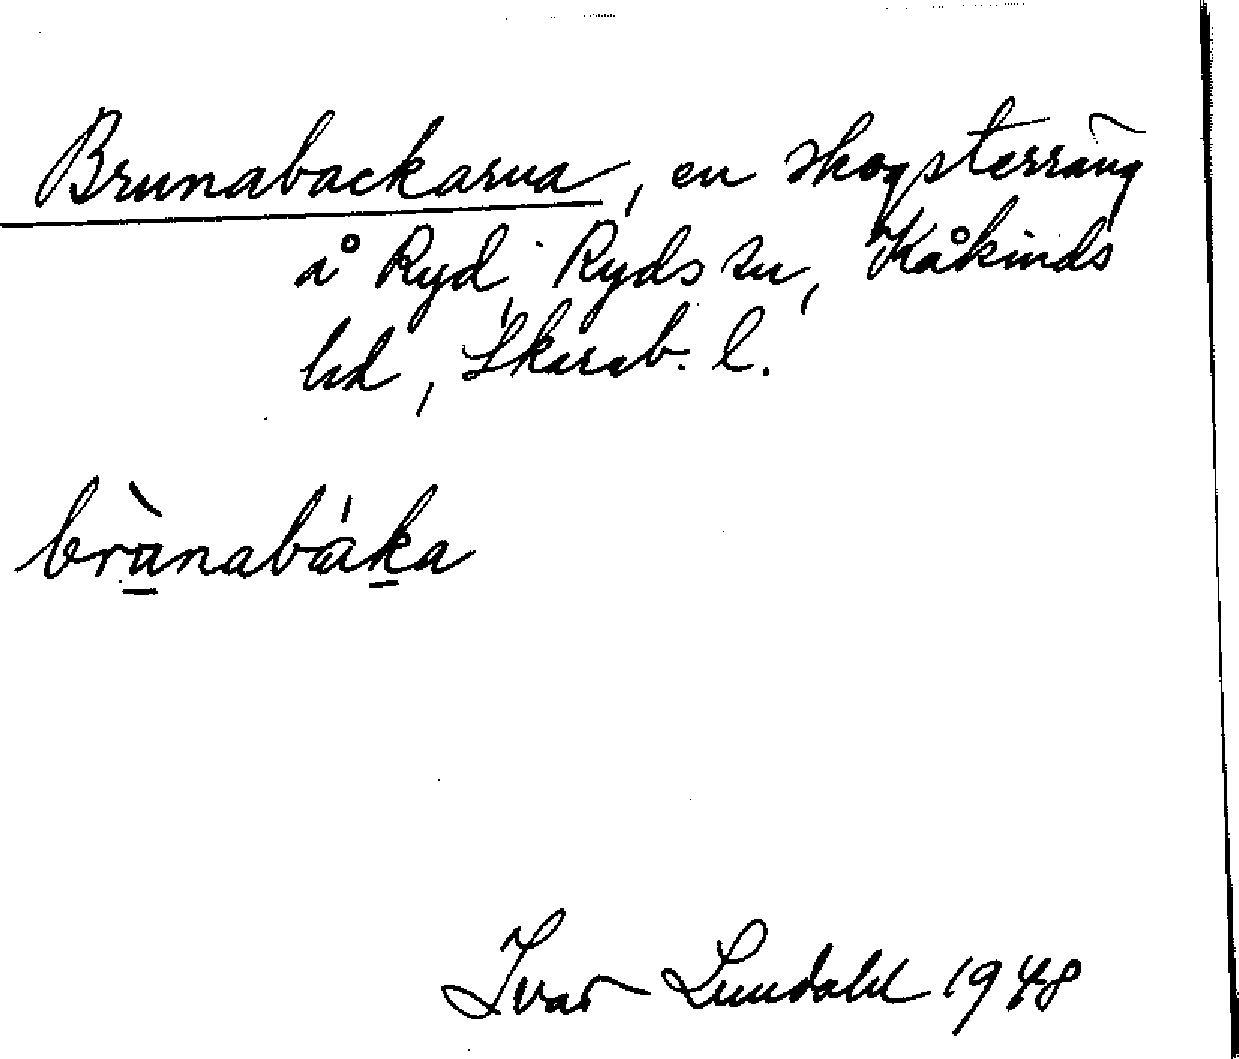 Brunabackarna, en skogsterräng
å Ryd, Ryds sn, Kåkinds
hd, Skarab. l.
brùnabáka
Ivar Lundahl 1948